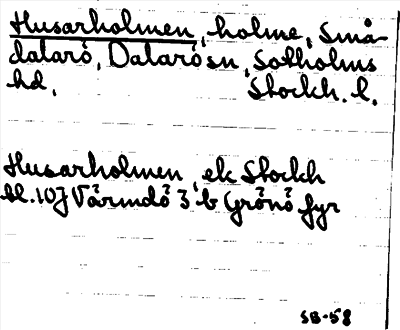 Husarholmen, holme, Små-
dalarö, Dalarö sn, Sotholms
hd. Stockh. l.
Husarholmen, ek Stockh
bl. 10J Värmdö 3 b Grönö fyr
SB-58